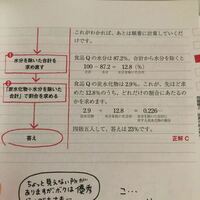 これがわかれば、あとは順番に計算していくだけです。
❶
水分を除いた合計を求め直す
食品Qの水分は87.2%。合計から水分を除くと
100－87.2 ＝ 12.8（％）
❷
「炭水化物÷水分を除いた合計」で割合を求める
食品Qの炭水化物は2.9%。これが、先ほど求めた12.8%のうち、どれだけの割合にあたるのかを求めます。
2.9 ÷ 12.8 ＝ 0.226…
答え
四捨五入して、答えは23%です。
正解 C
ちょっと見えないPhが
ありますが、ボクは優秀
こ…